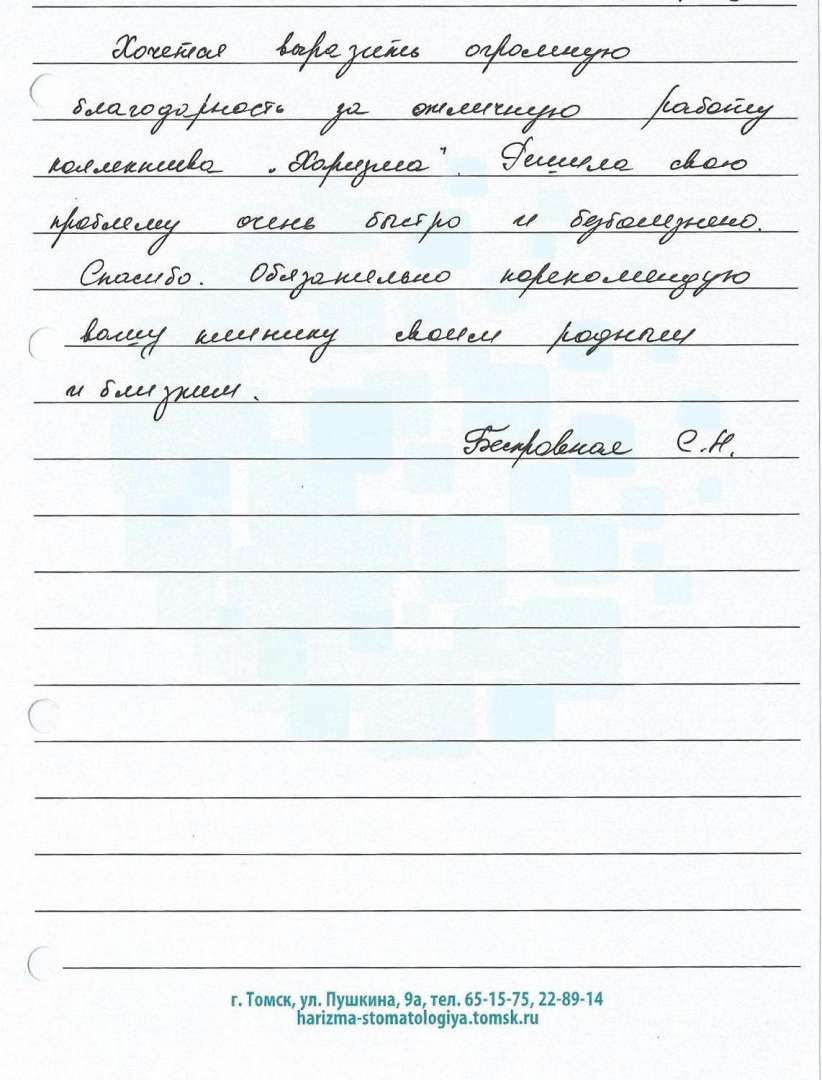 Хочется выразить огромную
благодарность за отличную работу
коллектива „Харизма". Решила свою
проблему очень быстро и безболезнено.
Спасибо. Обязательно порекомендую
вашу клинику своим родным
и близким.
Бескровная С.Н.
г. Томск, ул. Пушкина, 9а, тел. 65-15-75, 22-89-14
harizma-stomatologiya.tomsk.ru